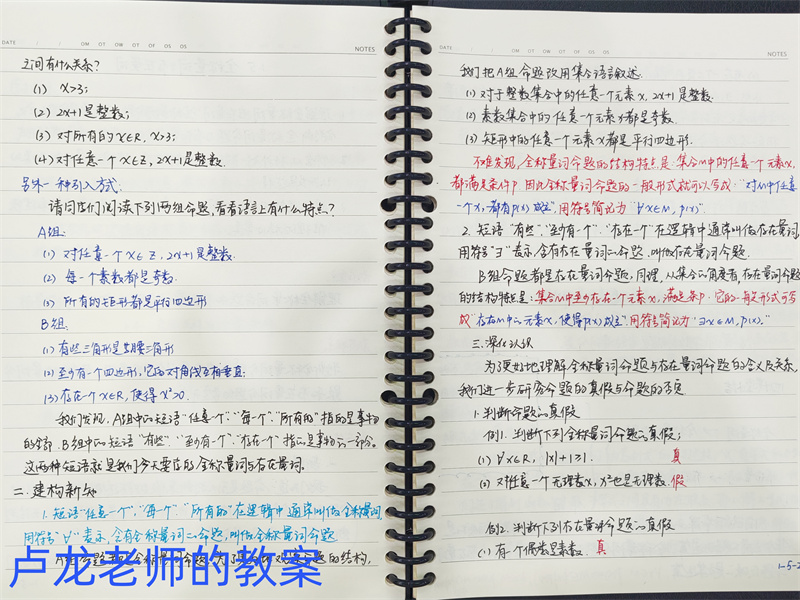 DATE
NOTES
之间有什么关系?
(1) x>3;
(2) 2x+1是整数;
(3) 对所有的x∈R, x>3;
(4) 对任意一个x∈Z, 2x+1是整数.
另外一种引入方式:
请同学们阅读下列两组命题,看看语言上有什么特点?
A组:
(1) 对任意一个x∈Z, 2x+1是整数.
(2) 每一个素数都是奇数.
(3) 所有的矩形都是平行四边形
B组.
(1) 有些三角形是等腰三角形
(2) 至少有一个四边形,它的对角线互相垂直;
(3) 存在一个x∈R, 使得x²>0.
我们发现, A组中的短语"任意一个"、"每一个"、"所有的"指的是事物
的全部. B组中的短语"有些"、"至少有一个"、"存在一个"指的是事物的一部分.
这两种短语就是我们今天要学的全称量词与存在量词.
二. 建构新知
1. 短语"任意一个"、"每一个"、"所有的"在逻辑中通常叫做全称量词,
用符号"∀"表示,含有全称量词的命题,叫做全称量词命题
卢龙老师的教案
DATE
NOTES
我们把A组命题改用集合语言叙述.
(1) 对于整数集合中的任意一个元素x, 2x+1是整数.
(2) 素数集合中的任意一个元素x都是奇数.
(3) 矩形中的任意一个元素x都是平行四边形.
不难发现,全称量词命题的结构特点是:集合M中的任意一个元素x,
都满足条件p. 因此全称量词命题的一般形式就可以写成:"对M中任意
一个x,都有p(x)成立",用符号简记为"∀x∈M, p(x)".
2. 短语"有些"、"至少有一个"、"存在一个"在逻辑中通常叫做存在量词,
用符号"∃"表示,含有存在量词的命题,叫做存在量词命题.
B组命题都是存在量词命题,同理,从集合的角度看,存在量词命题
的结构特点是:集合M中至少存在一个元素x,满足条件p. 它的一般形式可写
成"存在M中的元素x,使得p(x)成立",用符号简记为"∃x∈M, p(x)."
三.深化认识
为了更好地理解全称量词命题与存在量词命题的含义及关系,
我们进一步研究命题的真假与命题的否定
1.判断命题的真假
例1. 判断下列全称量词命题的真假;
(1) ∀x∈R, |x|+1≥1. 真
(2) 对任意一个无理数x, x²也是无理数. 假
例2. 判断下列存在量词命题的真假
(1) 有一个偶数是素数. 真
1-5-2